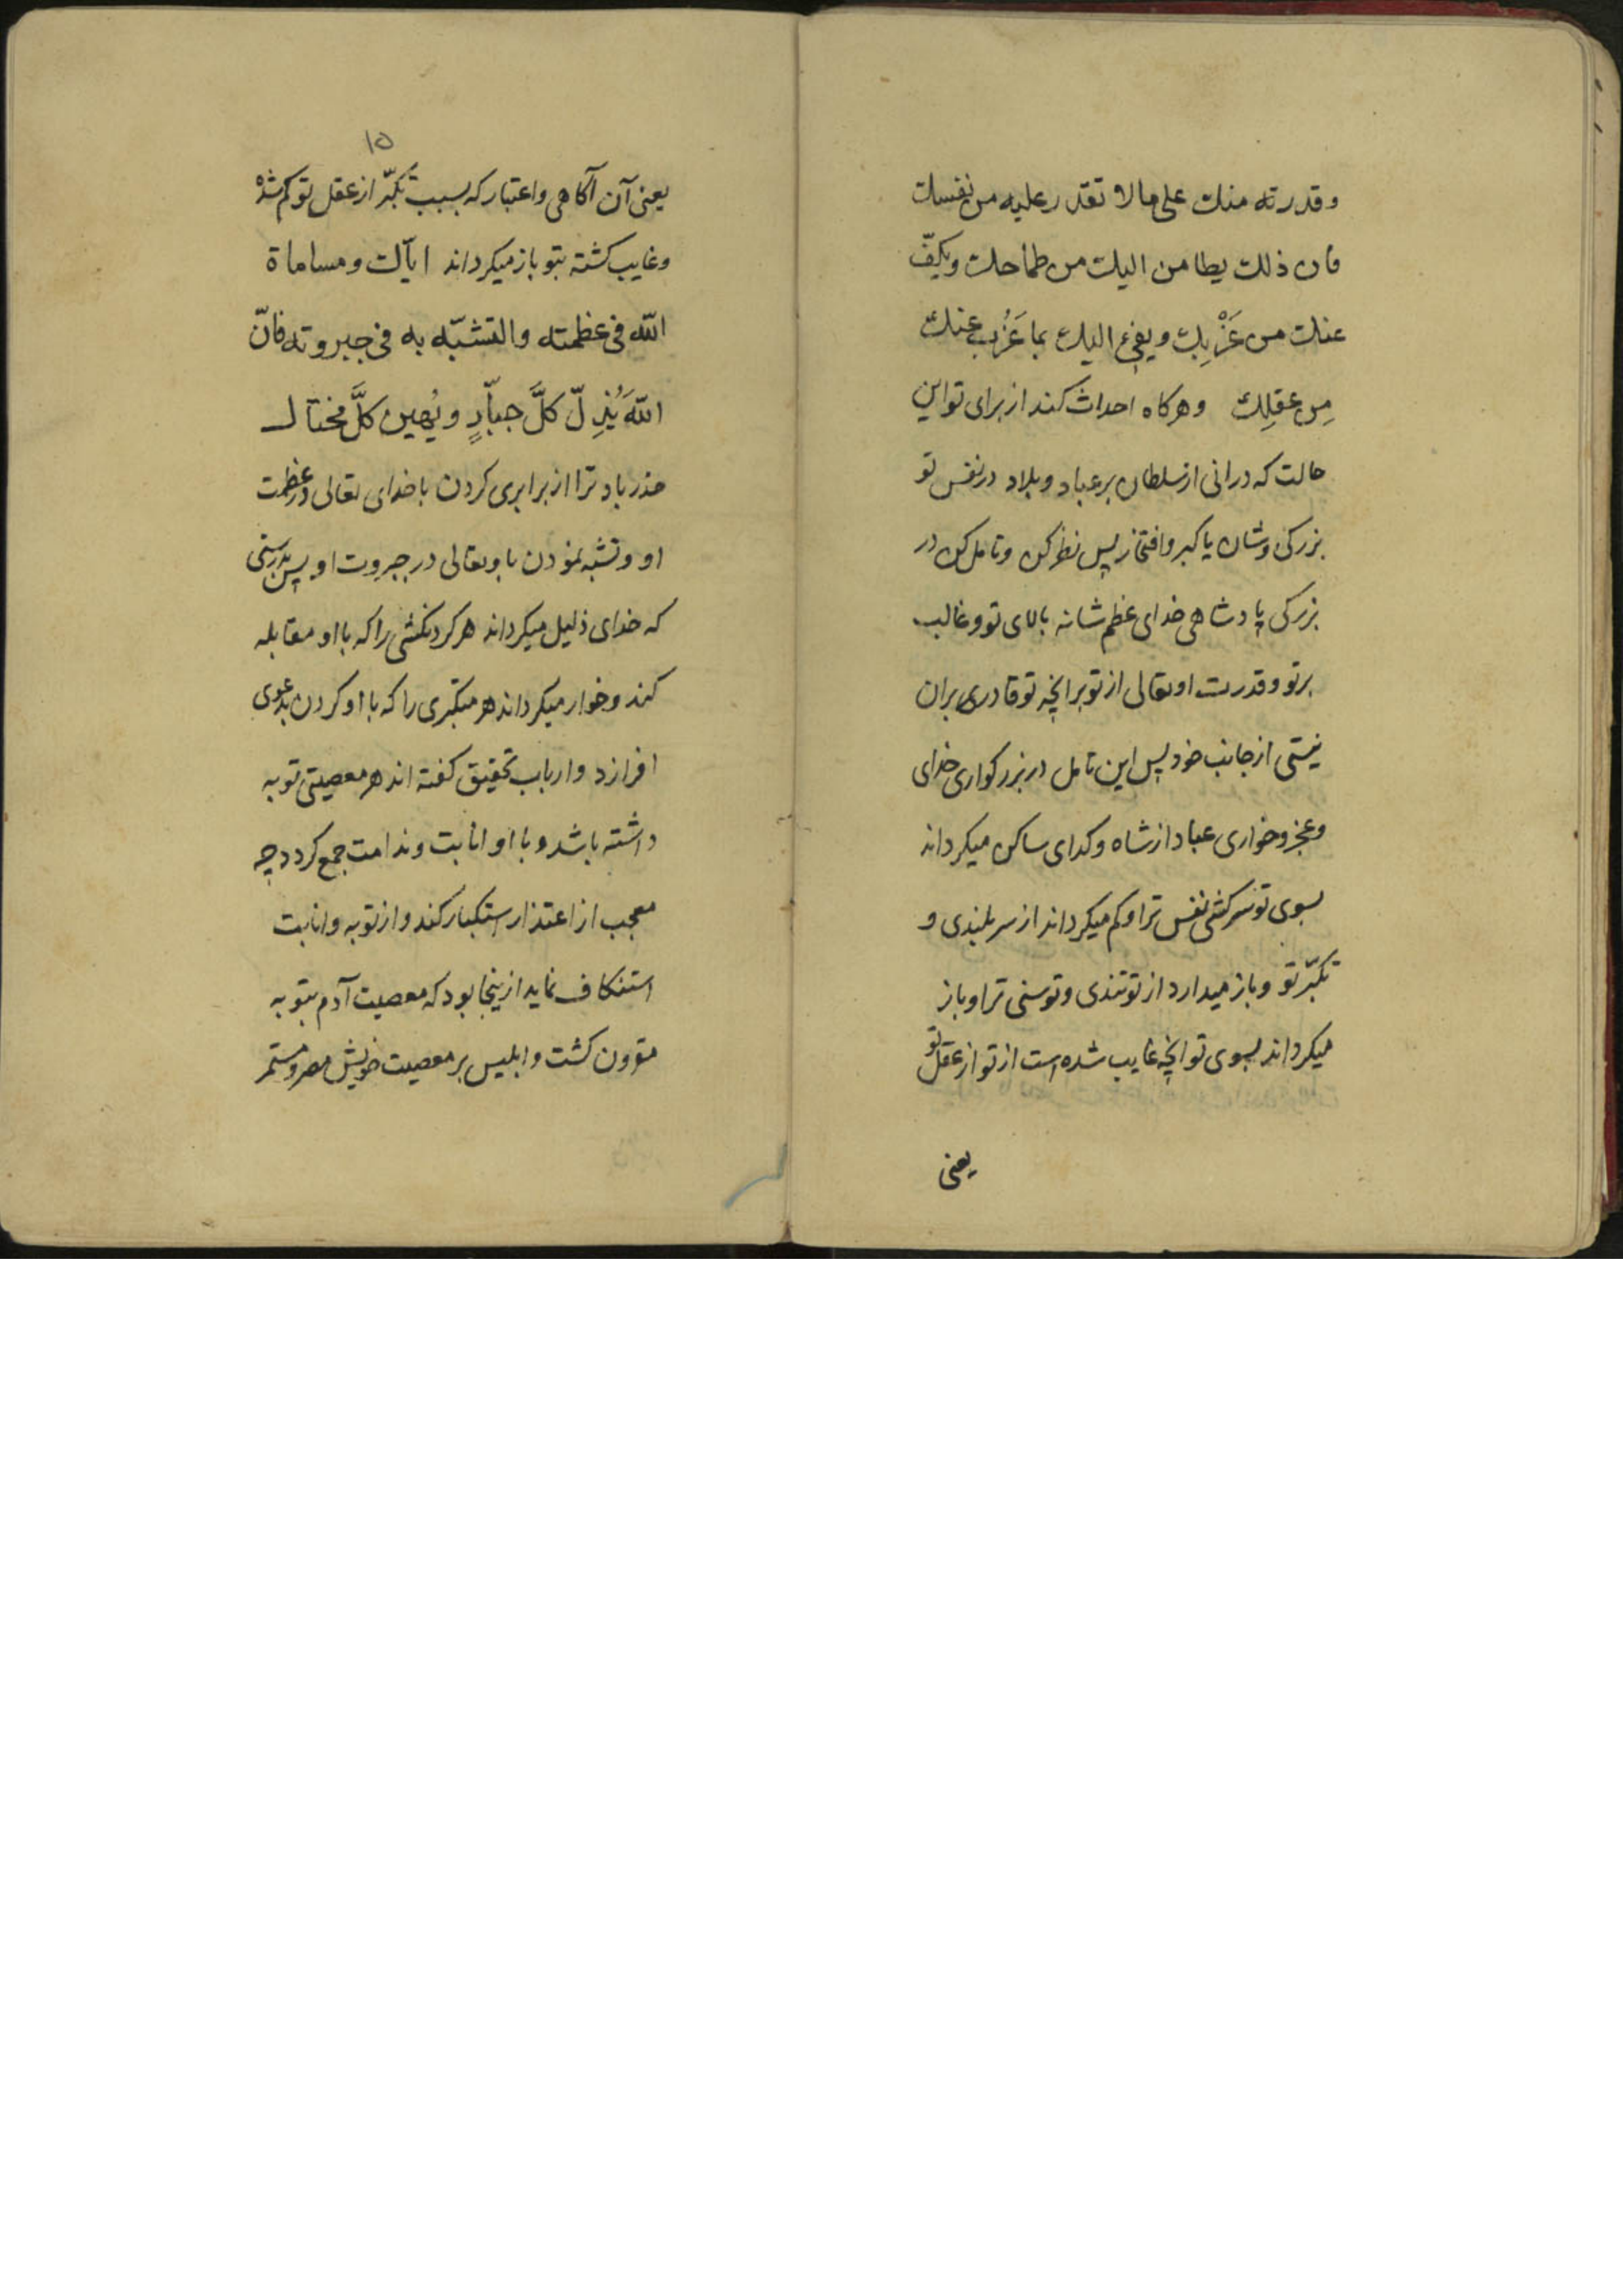 وقدرته منك على مالا تقدر عليه من نفسك
فان ذلك يطامن اليك من طماحك ويكفّ
عنك من غَرْبِك ويفيء اليك بما عَزُب عنك
مِن عقلِك وهركاه احداث كند از براى تو اين
حالت كه درانى از سلطان بر عباد و بلاد در نفس تو
بزركى و شان يا كبر و افتخار پس نظر كن و تامل كن در
بزركى پادشاهى خداى عظم شانه بالاى تو و غالب
بر تو و قدرت او تعالى از تو بر انچه تو قادر بران
نيستى از جانب خود پس اين تامل در بزركوارى خداى
و عجز و خوارى عباد از شاه و كداى ساكن ميكرداند
بسوى تو سركشى نفس ترا و كم ميكرداند از سربلندى و
تكبّر تو و باز ميدارد از تو تندى و توسنى ترا و باز
ميكرداند بسوى تو انچه غايب شده است از تو از عقل تو
يعنى
١٥
يعنى آن آكاهى و اعتبار كه بسبب تكبّر از عقل تو كم شده
و غايب كشته بتو باز ميكرداند اياك ومساماة
اللّه فى عظمته والتشبّه به فى جبروته فانّ
اللّهَ يُذِلّ كلَّ جبّارٍ ويُهين كلَّ مختال
حذر باد ترا از برابرى كردن با خداى تعالى در عظمت
او و تشبه نمودن باو تعالى در جبروت او پس بدرستى
كه خداى ذليل ميكرداند هر كردنكشى را كه با او مقابله
كند و خوار ميكرداند هر متكبرى را كه با او كردن بدعوى
افرازد و ارباب تحقيق كفته اند هر معصيتى توبه
داشته باشد و با او انابت و ندامت جمع كردد چه
معجب از اعتذار استكبار كند و از توبه و انابت
استنكاف نمايد ازينجا بود كه معصيت آدم بتوبه
مقرون كشت و ابليس بر معصيت خويش مصر و مستمر